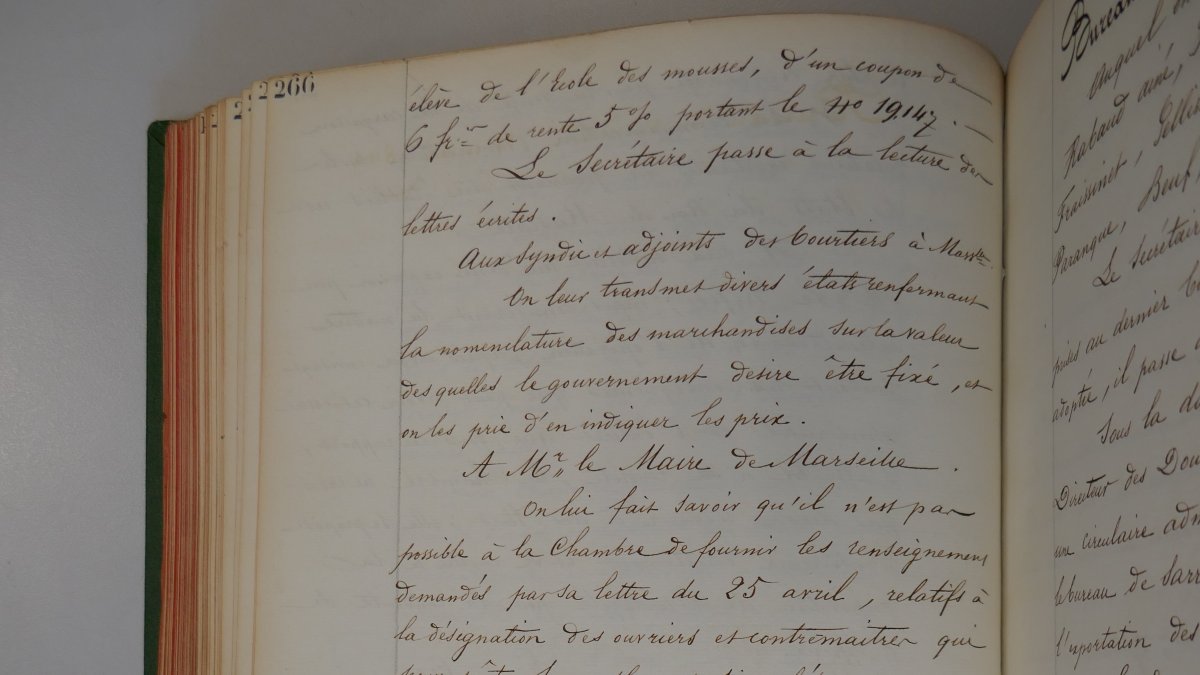 2
2
266
élève de l'Ecole des mousses, d'un coupon de
6 fr. de rente 5 % portant le No 19,147. —
Le Secrétaire passe à la lecture des
lettres écrites.
Aux Syndic et adjoints des Courtiers à Marslle.
On leur transmet divers états renfermant
la nomenclature des marchandises sur la valeur
des quelles le gouvernement désire être fixé, et
on les prie d'en indiquer les prix.
A Mr. le Maire de Marseille.
On lui fait savoir qu'il n'est pas
possible à la Chambre de fournir les renseignemens
demandés par sa lettre du 25 avril, relatifs à
la désignation des ouvriers et contremaitres qui
Bureau
Auquel
Rabaud ainé,
Fraissinet,
Paranque, Beuf
Le Secrétaire
prises au dernier
adoptée, il passe
Sous la
Directeur des Dou
une circulaire adm
le bureau de Sarr
l'exportation des